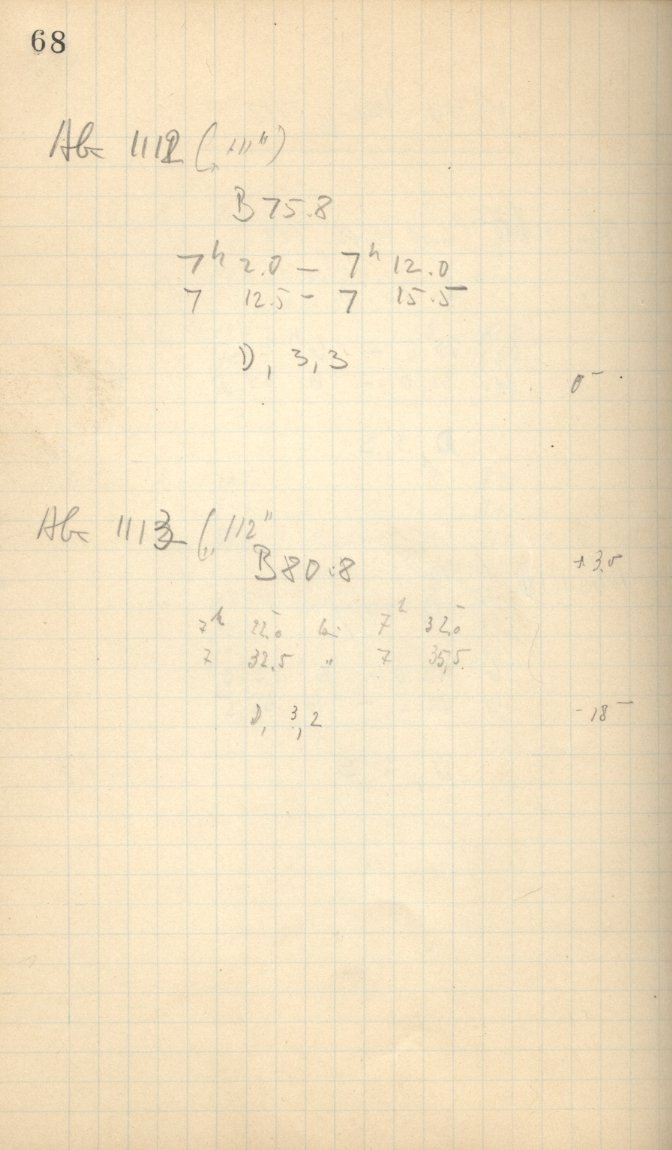 68
Ab 1112 („111")
B 75.8
7h 2.0 — 7h 12.0
7 12.5 - 7 15.5
D, 3,3
0
Ab 1113 („112"
B 80.8
7h 22.0 bis 7h 32.0
7 32.5 " 7 35,5
D, 3,2
-18